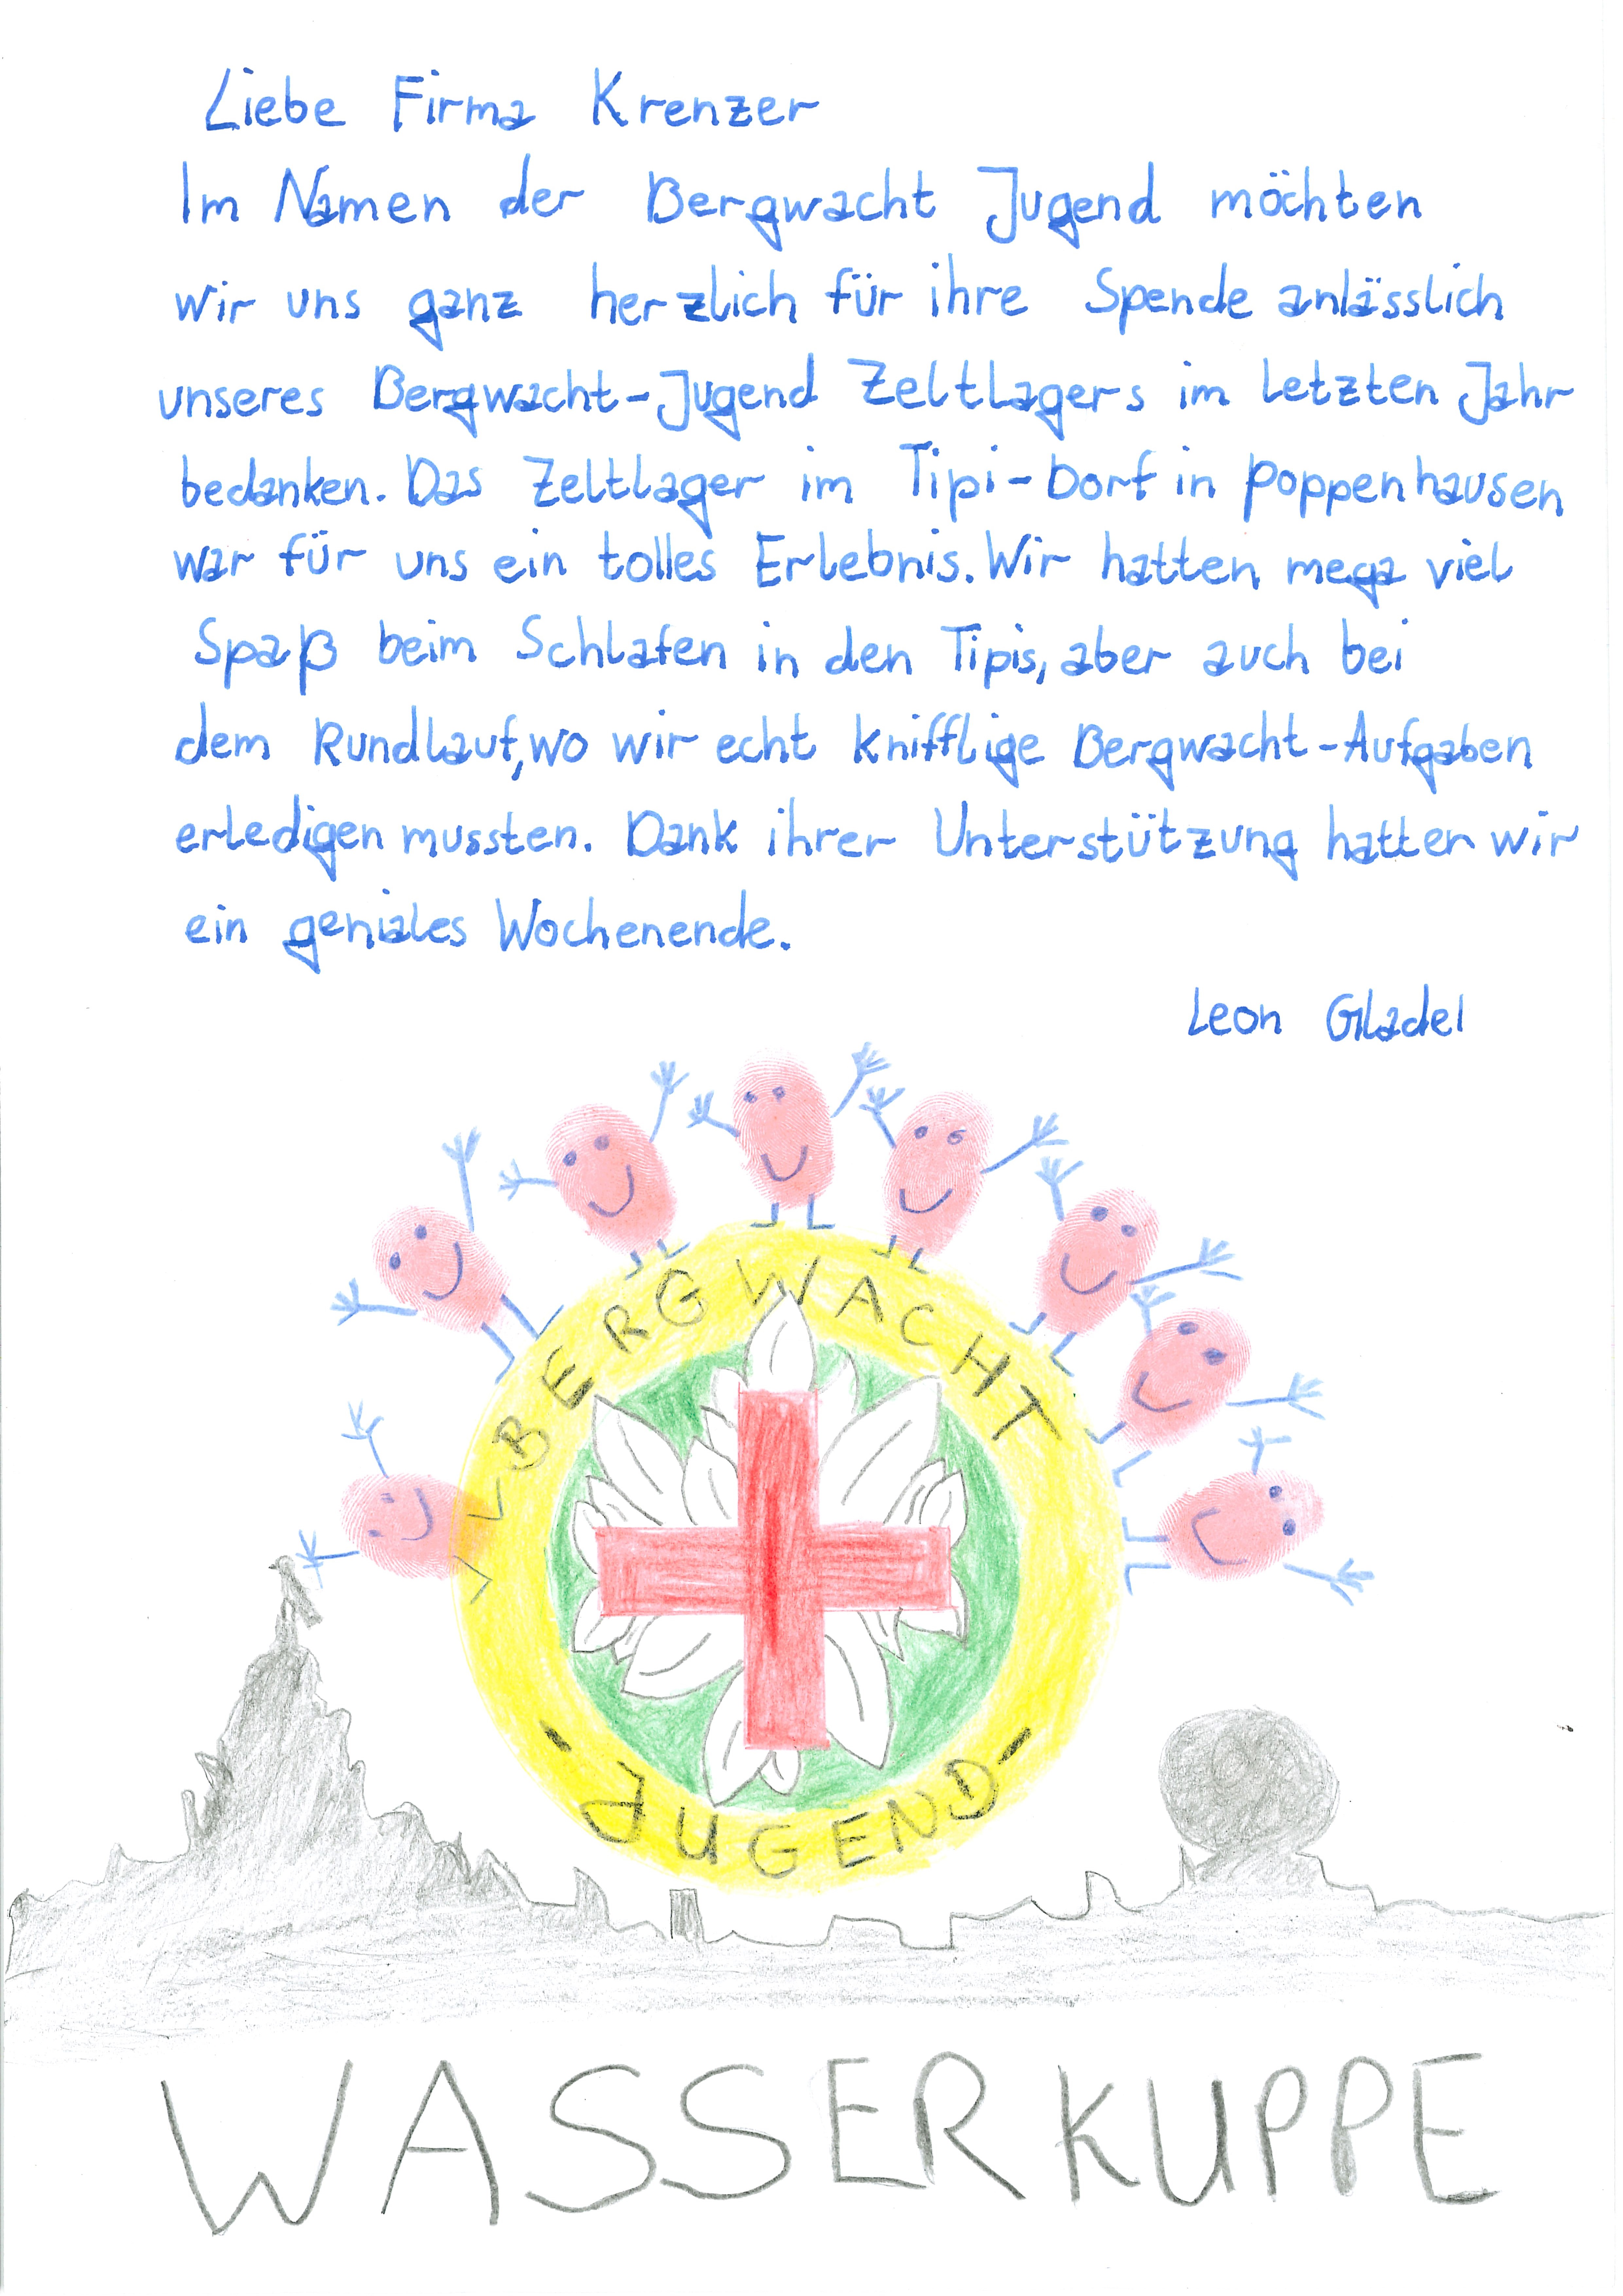 Liebe Firma Krenzer
Im Namen der Bergwacht Jugend möchten
wir uns ganz herzlich für ihre Spende anlässlich
unseres Bergwacht-Jugend Zeltlagers im letzten Jahr
bedanken. Das Zeltlager im Tipi-Dorf in Poppenhausen
war für uns ein tolles Erlebnis. Wir hatten mega viel
Spaß beim Schlafen in den Tipis, aber auch bei
dem Rundlauf, wo wir echt knifflige Bergwacht-Aufgaben
erledigen mussten. Dank ihrer Unterstützung hatten wir
ein geniales Wochenende.
Leon Gladel
BERGWACHT
-JUGEND-
WASSERKUPPE